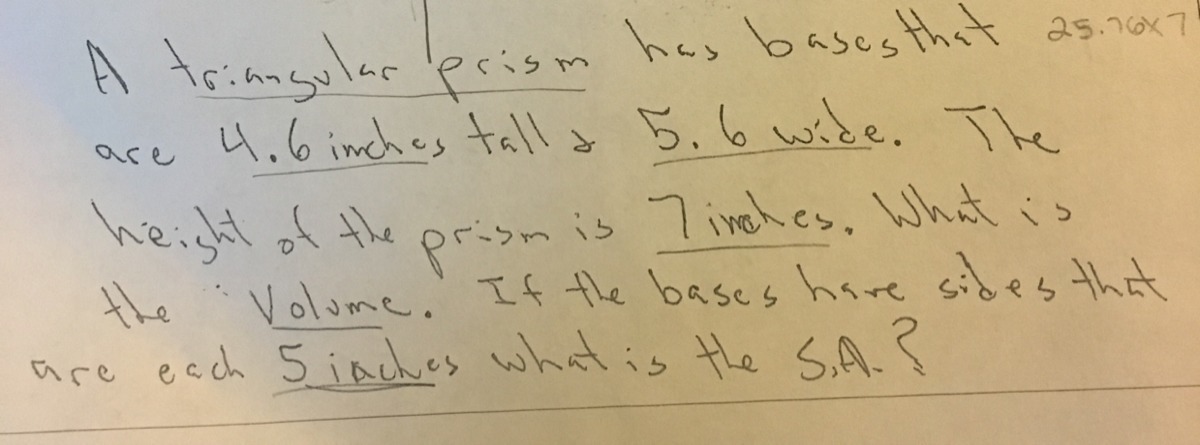 A triangular prism has bases that 25.76x7
are 4.6 inches tall & 5.6 wide. The
height of the prism is 7 inches. What is
the Volume. If the bases have sides that
are each 5 inches what is the S.A.?